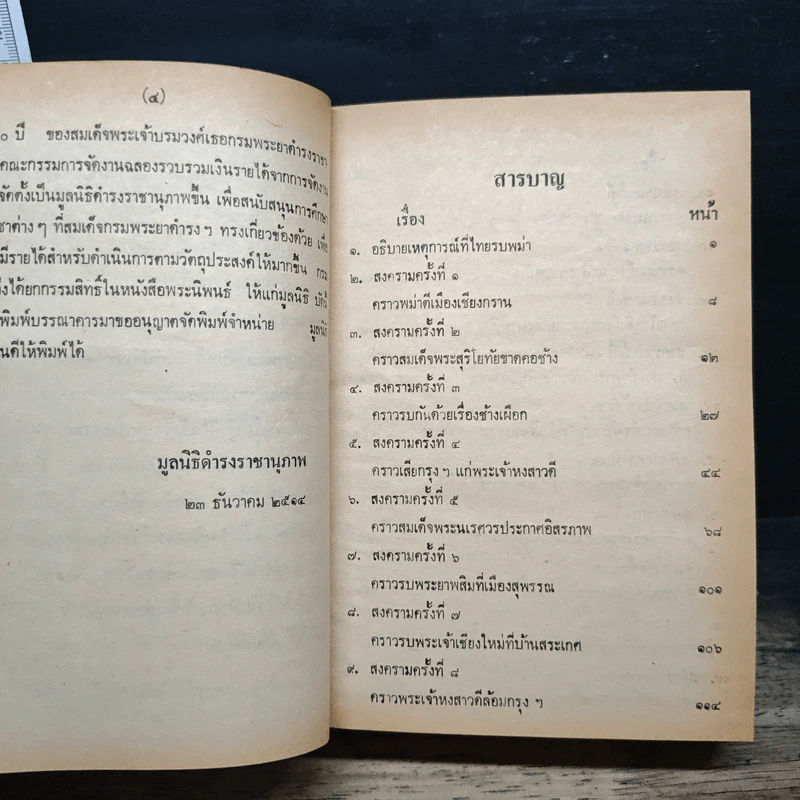 (๔)
๐ ปี ของสมเด็จพระเจ้าบรมวงศ์เธอกรมพระยาดำรงราชา
คณะกรรมการจัดงานฉลองรวบรวมเงินรายได้จากการจัดงาน
จัดตั้งเป็นมูลนิธิดำรงราชานุภาพขึ้น เพื่อสนับสนุนการศึกษา
ชาต่างๆ ที่สมเด็จกรมพระยาดำรงฯ ทรงเกี่ยวข้องด้วย เพื่อ
มีรายได้สำหรับดำเนินการตามวัตถุประสงค์ให้มากขึ้น กรม
ได้ยกกรรมสิทธิ์ในหนังสือพระนิพนธ์ ให้แก่มูลนิธิ บัดนี้
พิมพ์บรรณาคารมาขออนุญาตจัดพิมพ์จำหน่าย มูลนิธิ
นดีให้พิมพ์ได้
มูลนิธิดำรงราชานุภาพ
๒๓ ธันวาคม ๒๕๑๔
สารบาญ
เรื่อง หน้า
๑. อธิบายเหตุการณ์ที่ไทยรบพม่า ๑
๒. สงครามครั้งที่ ๑
คราวพม่าตีเมืองเชียงกราน ๘
๓. สงครามครั้งที่ ๒
คราวสมเด็จพระสุริโยทัยขาดคอช้าง ๑๒
๔. สงครามครั้งที่ ๓
คราวรบกันด้วยเรื่องช้างเผือก ๒๗
๕. สงครามครั้งที่ ๔
คราวเสียกรุงฯ แก่พระเจ้าหงสาวดี ๔๔
๖. สงครามครั้งที่ ๕
คราวสมเด็จพระนเรศวรประกาศอิสรภาพ ๖๘
๗. สงครามครั้งที่ ๖
คราวรบพระยาพสิมที่เมืองสุพรรณ ๑๐๑
๘. สงครามครั้งที่ ๗
คราวรบพระเจ้าเชียงใหม่ที่บ้านสระเกศ ๑๐๖
๙. สงครามครั้งที่ ๘
คราวพระเจ้าหงสาวดีล้อมกรุง ๆ ๑๑๔